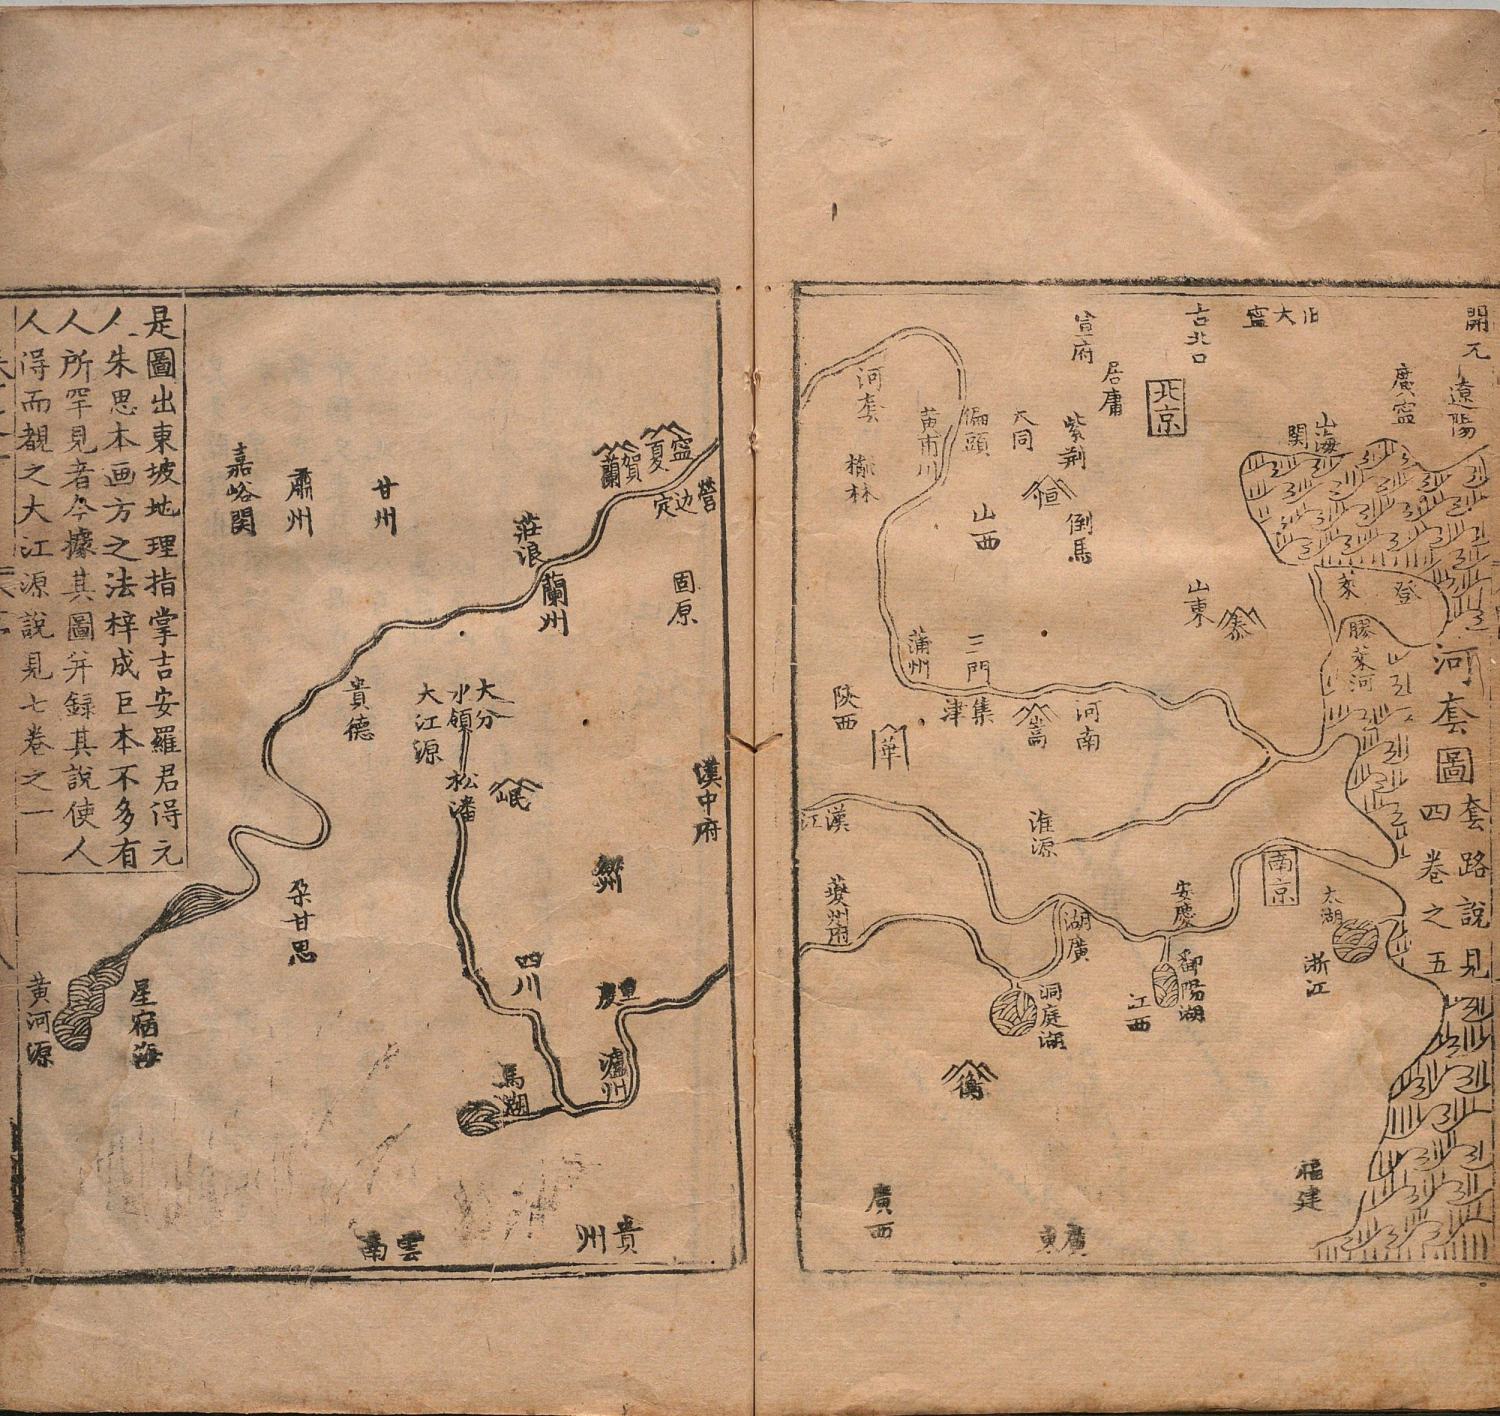 河套圖
套路說見
四卷之五
開元
遼陽
廣寧
旧大寧
古北口
山海
関
北京
宣府
居庸
紫荆
大同
偏頭
黄甫川
河套
榆林
恒
倒馬
山西
登
萊
膠萊河
山東
泰
三門
集津
蒲州
陝西
華
嵩
河南
淮源
漢江
夔州府
湖廣
洞庭湖
安慶
南京
太湖
浙江
鄱陽湖
江西
衡
福建
廣東
廣西
寧夏
賀蘭
營
定边
固原
莊浪
蘭州
甘州
肅州
嘉峪関
貴德
大分
水領
大江源
松潘
岷
漢中府
四川
重慶
瀘州
馬湖
朵甘思
星宿海
黄河源
貴州
雲南
是圖出東坡地理指掌吉安羅君得元
人朱思本画方之法梓成巨本不多有
人所罕見者今據其圖并録其說使人
人得而覩之大江源說見七卷之一